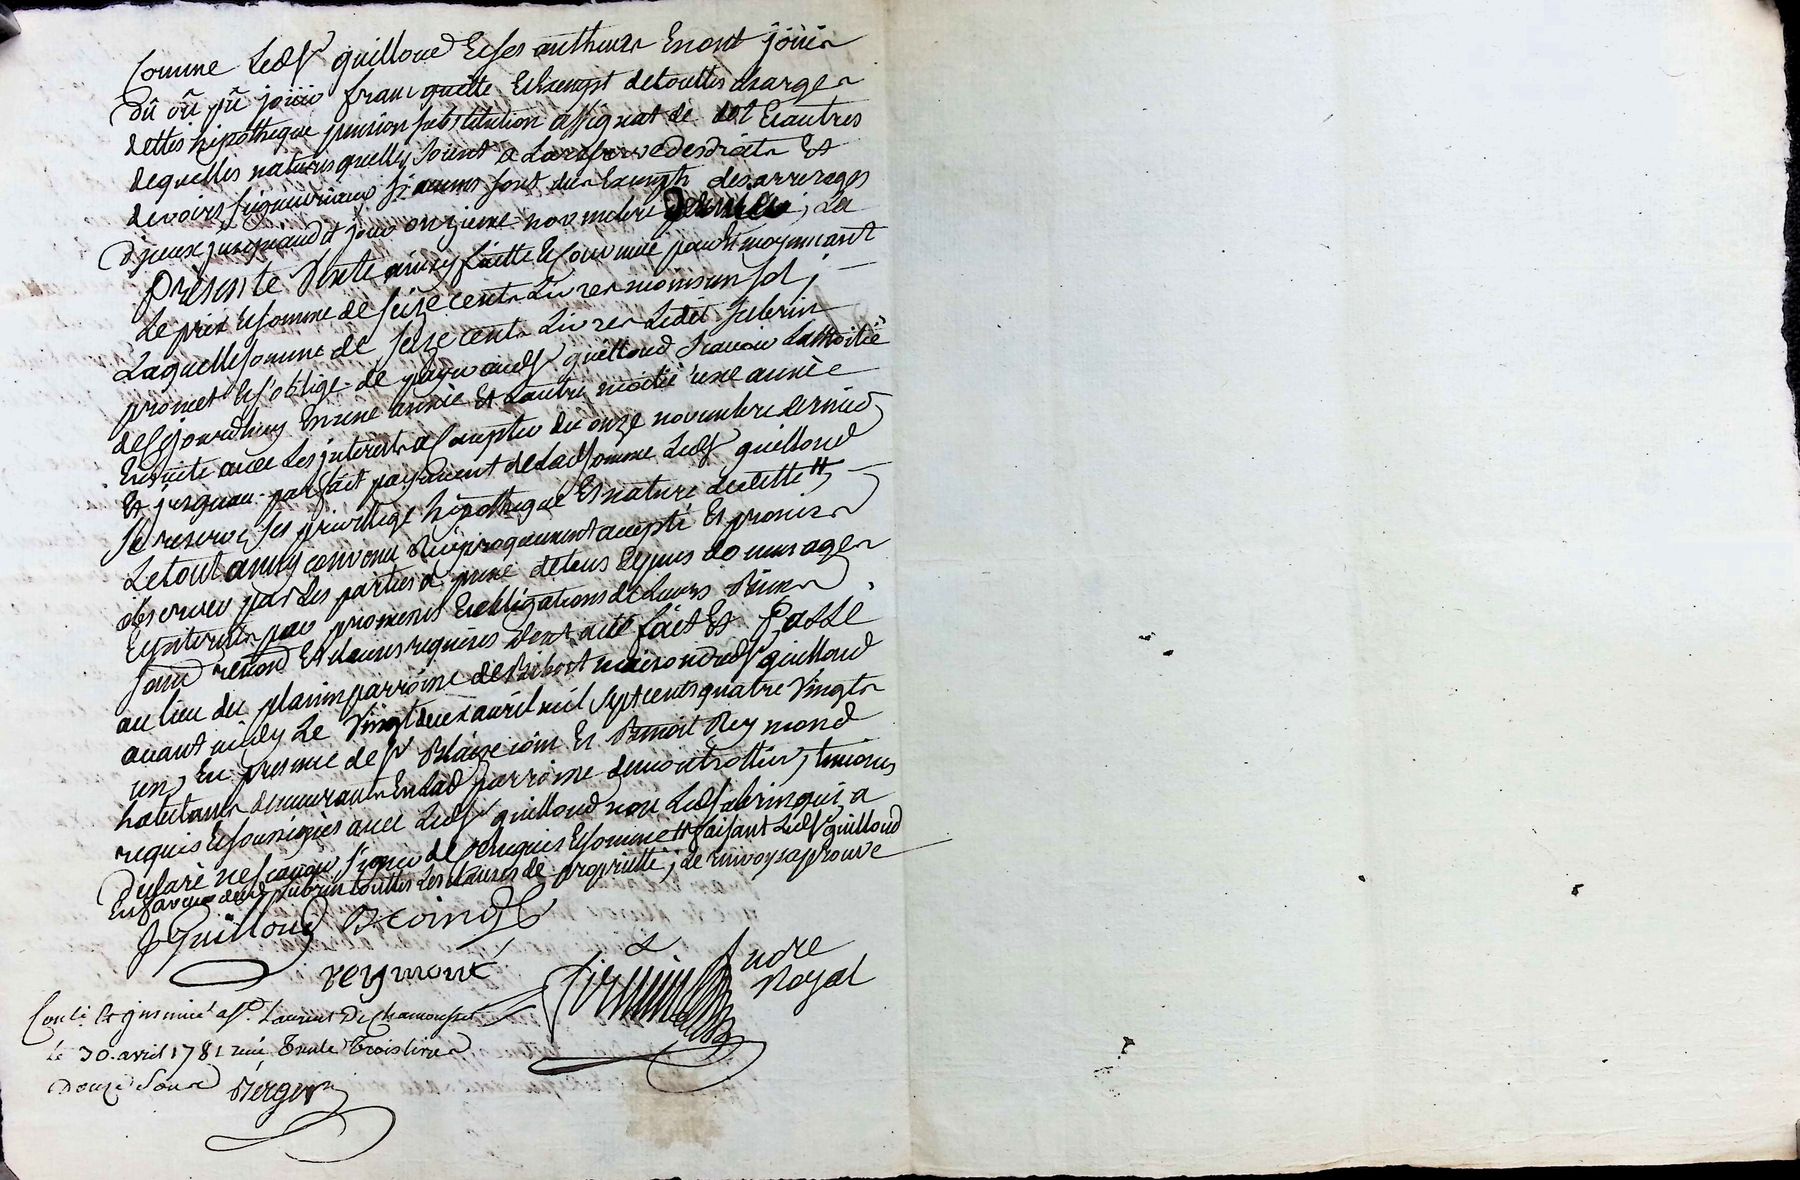 Comme Ledsr guilloud Et ses autheurs En ont joüir
dû oû pû joüir franc quitte Et Exempt de touttes charger
dettes hipotheque pension substitution assignat de dot Et autres
de quelles natures quelles soient a La reserve des droits Et
devoirs seigneuriaux si aucuns sont dus Exempts des arrerages
d'jceux jusqu'aud jour onzieme novembre dernier, La
presente Vente ainsy faitte Et convenüe pour Et moyennant
Le prix Et somme de seize cents Livres moins un sol ;
Laquelle somme de seize cents Livres Ledit
promet Et s'oblige de payer audsr guilloud scavoir La moitié
dès aujourdhuy En une année Et Lautre moitié une année
Ensuite avec Les jnterests a compter du onze novembre dernier
Et jusquau parfait payement de Lad somme Ledsr guilloud
se reserve ses privillege hipotheque Et nature de dette #
Le tout ainsy convenu Reciproquement accepté Et promis
observer par Les parties a peine de tous depens dommages
Et jnterests par promesses Et obligations de Leurs Biens
sous renond Et clauses requises dont acte fait Et Passé
au lieu du parroisse de maison dudsr guilloud
avant midy Le Vingt deux avril mil sept cents quatre Vingts
un, En presence de sr Blaize coin Et Benoit Reymond
habitants demeurants En Lad parroisse de , temoins
requis Et soussignés avec Ledsr guilloud non Led qui a
declaré ne scavoir signer de ce requis Et sommé # faisant Ledsr guilloud
En faveur dud touttes Les clauses de proprietté ; de renvoys aprouvé
J Guilloud B coindt
reymont
Notre
Royal
Conlé Et jnsinué a St. Laurent De Chamousset
le 30. avril 1781 reçu trente trois livres
Douze sous Berger